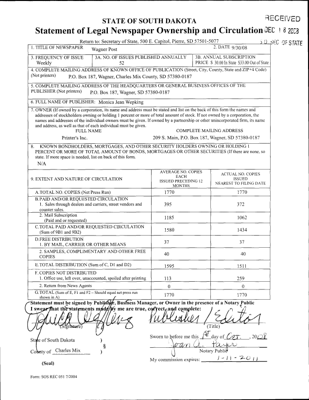 STATE OF SOUTH DAKOTA
RECEIVED
Statement of Legal Newspaper Ownership and Circulation DEC 18 2008
Return to: Secretary of State, 500 E. Capitol, Pierre, SD 57501-5077
OF STATE
1. TITLE OF NEWSPAPER
Wagner Post
2. DATE 9/30/08
3. FREQUENCY OF ISSUE
Weekly
3A. NO. OF ISSUES PUBLISHED ANNUALLY
52
3B. ANNUAL SUBSCRIPTION
PRICE
4. COMPLETE MAILING ADDRESS OF KNOWN OFFICE OF PUBLICATION (Street, City, County, State and ZIP+4 Code)
(Not printers)
P.O. Box 187, Wagner, Charles Mix County, SD 57380-0187
5. COMPLETE MAILING ADDRESS OF THE HEADQUARTERS OR GENERAL BUSINESS OFFICES OF THE
PUBLISHER (Not printer)
P.O. Box 187, Wagner, SD 57380-0187
6. FULL NAME OF PUBLISHER: Monica Jam Wepking
7. OWNER (If owned by a corporation, its name and address must be stated and list on the back of this form the names and
addresses of stockholders owning or holding 1 percent or more of total amount of stock. If not owned by a corporation, the
names and addresses of the individual owners must be given. If owned by a partnership or other unincorporated firm, its name
and address, as well as that of each individual must be given.
FULL NAME
COMPLETE MAILING ADDRESS
Printer's Inc.
209 S. Main, PO Box 187, Wagner, SD 57380-0187
8. KNOWN BONDHOLDERS, MORTGAGES, AND OTHER SECURITY HOLDERS OWNING OR HOLDING 1
PERCENT OR MORE OF TOTAL AMOUNT OF BONDS, MORTGAGES OR OTHER SECURITIES (If there are none, so
state. If more space is needed, list on back of this form.
N/A
9. EXTENT AND NATURE OF CIRCULATION
AVERAGE NO. COPIES
EACH
ISSUED PRECEDING 12
MONTHS
ACTUAL NO. COPIES
ISSUED
NEAREST TO FILING DATE
A. TOTAL NO. COPIES (Net Press Run)
1770
1770
B. PAID AND/OR REQUESTED CIRCULATION
1. Sales through dealers and carriers, street vendors and
counter sales.
395
372
2. Mail Subscription
(Paid and or requested)
1185
1062
C. TOTAL PAID AND/OR REQUESTED CIRCULATION
(Sum of 9B1 and 9B2)
1580
1434
D. FREE DISTRIBUTION
1. BY MAIL, CARRIER OR OTHER MEANS
37
37
2. SAMPLES, COMPLIMENTARY AND OTHER FREE
COPIES
40
40
E. TOTAL DISTRIBUTION (Sum of C, D1 and D2)
1595
1511
F. COPIES NOT DISTRIBUTED
1. Office use, left over, unaccounted, spoiled after printing
113
259
2. Return from News Agents
0
0
G. TOTAL (Sum of E, F1 and F2 - Should equal net press run
shown in A)
1770
1770
Statement must be signed by Publisher, Business Manager, or Owner in the presence of a Notary Public
I swear that the statements made by me are true, correct, and complete:
Publisher/Editor
(Signature)
(Title)
State of South Dakota )
Sworn to before me this 1st day of Oct. 2008
County of Charles Mix )
Notary Public
(Seal)
My commission expires: 1-11-2011
Form: SOS REC 051 7/2004